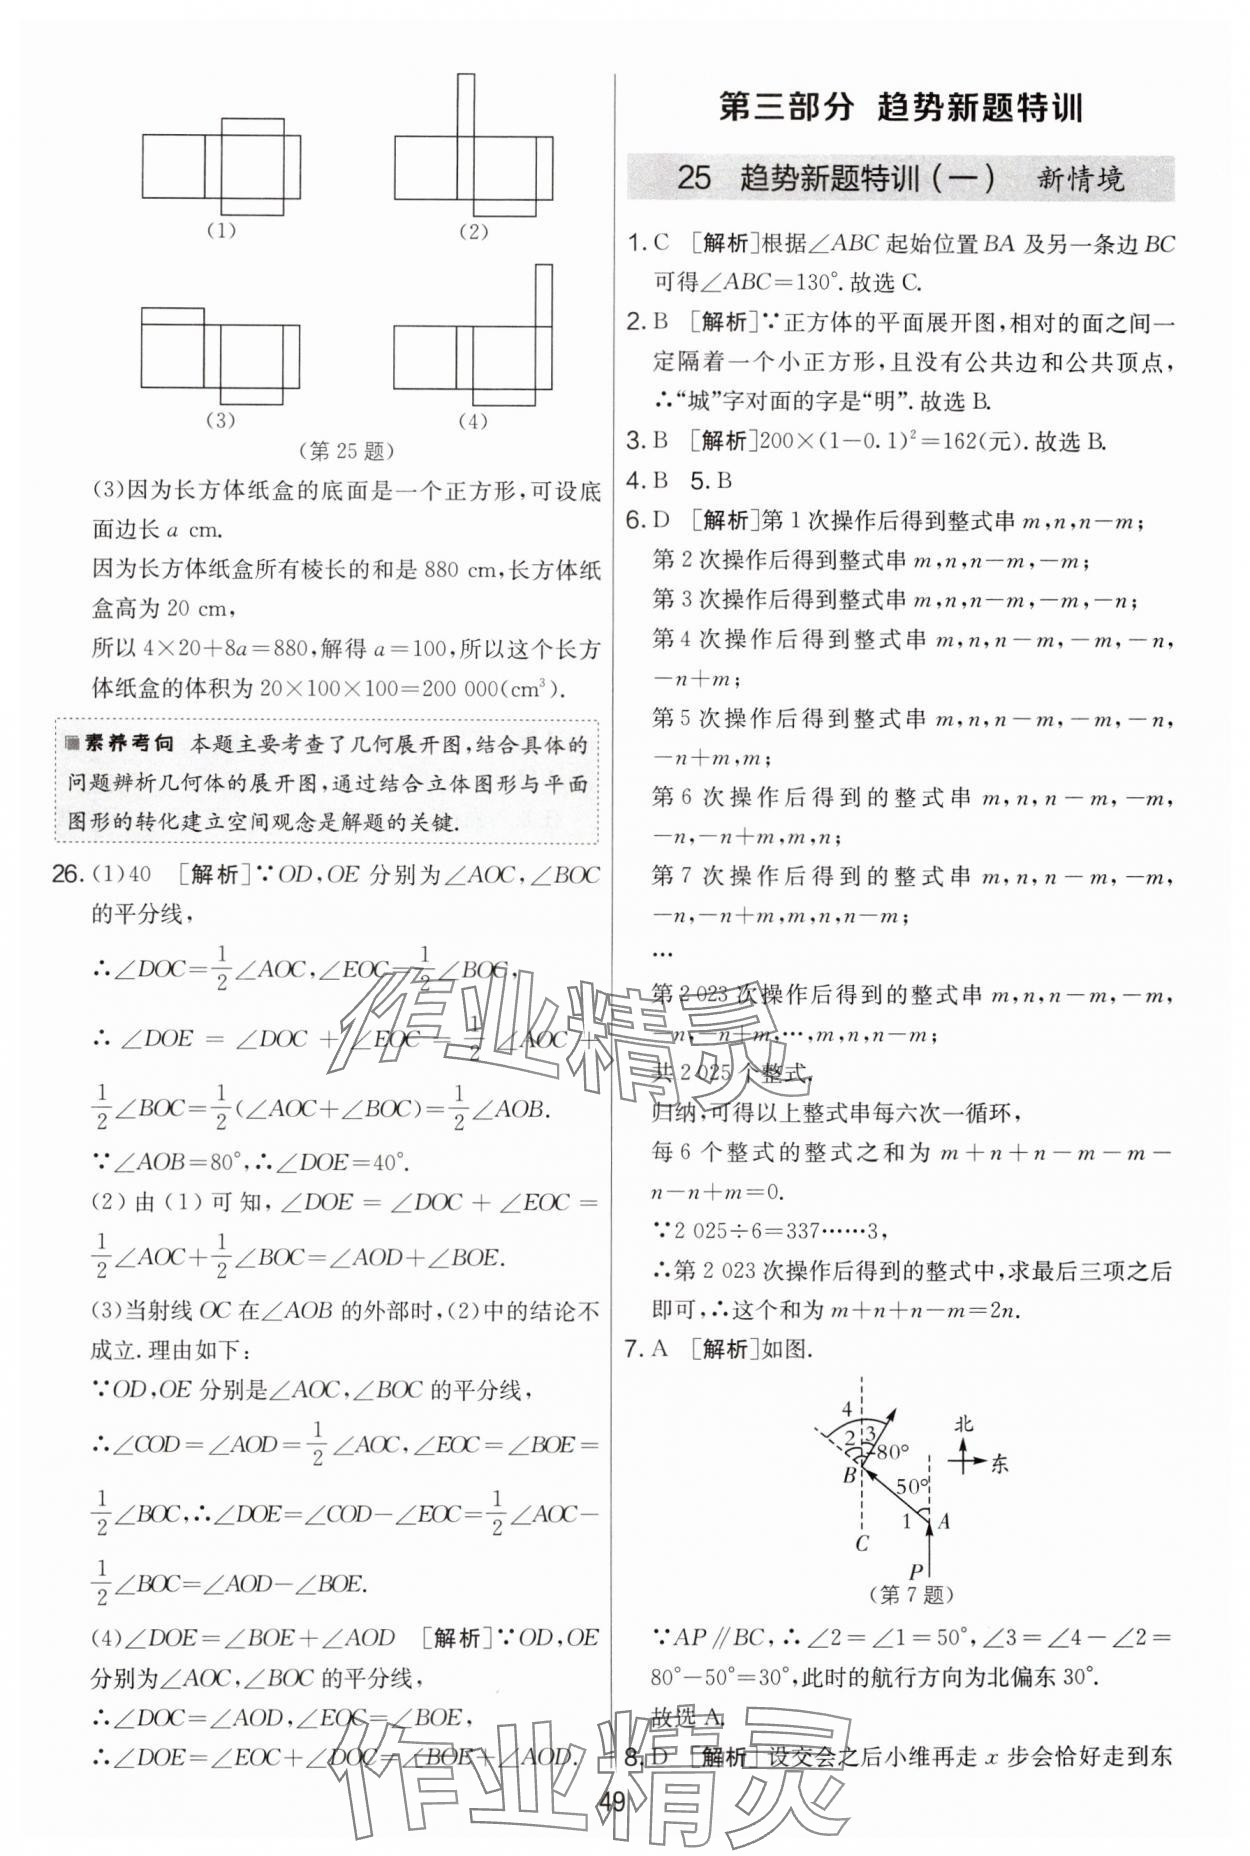 (1)
(2)
(3)
(4)
(第 25 题)
(3)因为长方体纸盒的底面是一个正方形,可设底
面边长 a cm.
因为长方体纸盒所有棱长的和是 880 cm,长方体纸
盒高为 20 cm,
所以 4×20+8a=880,解得 a=100,所以这个长方
体纸盒的体积为 20×100×100=200 000(cm³).
素养考向 本题主要考查了几何展开图,结合具体的
问题辨析几何体的展开图,通过结合立体图形与平面
图形的转化建立空间观念是解题的关键.
26. (1)40 [解析]∵OD,OE 分别为∠AOC,∠BOC
的平分线,
∴∠DOC=1/2∠AOC,∠EOC=1/2∠BOC,
∴∠DOE=∠DOC+∠EOC=1/2∠AOC+
1/2∠BOC=1/2(∠AOC+∠BOC)=1/2∠AOB.
∵∠AOB=80°,∴∠DOE=40°.
(2)由(1)可知,∠DOE=∠DOC+∠EOC=
1/2∠AOC+1/2∠BOC=∠AOD+∠BOE.
(3)当射线 OC 在∠AOB 的外部时,(2)中的结论不
成立.理由如下:
∵OD,OE 分别是∠AOC,∠BOC 的平分线,
∴∠COD=∠AOD=1/2∠AOC,∠EOC=∠BOE=
1/2∠BOC,∴∠DOE=∠COD-∠EOC=1/2∠AOC-
1/2∠BOC=∠AOD-∠BOE.
(4)∠DOE=∠BOE+∠AOD [解析]∵OD,OE
分别为∠AOC,∠BOC 的平分线,
∴∠DOC=∠AOD,∠EOC=∠BOE,
∴∠DOE=∠EOC+∠DOC=∠BOE+∠AOD.
第三部分 趋势新题特训
25 趋势新题特训(一) 新情境
1. C [解析]根据∠ABC 起始位置 BA 及另一条边 BC
可得∠ABC=130°.故选 C.
2. B [解析]∵正方体的平面展开图,相对的面之间一
定隔着一个小正方形,且没有公共边和公共顶点,
∴“城”字对面的字是“明”.故选 B.
3. B [解析]200×(1-0.1)²=162(元).故选 B.
4. B 5. B
6. D [解析]第 1 次操作后得到整式串 m,n,n-m;
第 2 次操作后得到整式串 m,n,n-m,-m;
第 3 次操作后得到整式串 m,n,n-m,-m,-n;
第 4 次操作后得到整式串 m,n,n-m,-m,-n,
-n+m;
第 5 次操作后得到整式串 m,n,n-m,-m,-n,
-n+m,m;
第 6 次操作后得到的整式串 m,n,n-m,-m,
-n,-n+m,m,n;
第 7 次操作后得到的整式串 m,n,n-m,-m,
-n,-n+m,m,n,n-m;
…
第 2 023 次操作后得到的整式串 m,n,n-m,-m,
-n,-n+m,…,m,n,n-m;
共 2 025 个整式.
归纳,可得以上整式串每六次一循环,
每 6 个整式的整式之和为 m+n+n-m-m-
n-n+m=0.
∵2 025÷6=337……3,
∴第 2 023 次操作后得到的整式中,求最后三项之后
即可,∴这个和为 m+n+n-m=2n.
7. A [解析]如图.
4
2
3
80°
B
50°
1
A
C
P
北
东
(第 7 题)
∵AP∥BC,∴∠2=∠1=50°,∠3=∠4-∠2=
80°-50°=30°,此时的航行方向为北偏东 30°.
故选 A.
8. D [解析]设交会之后小维再走 x 步会恰好走到东
49
作业精灵
作业精灵